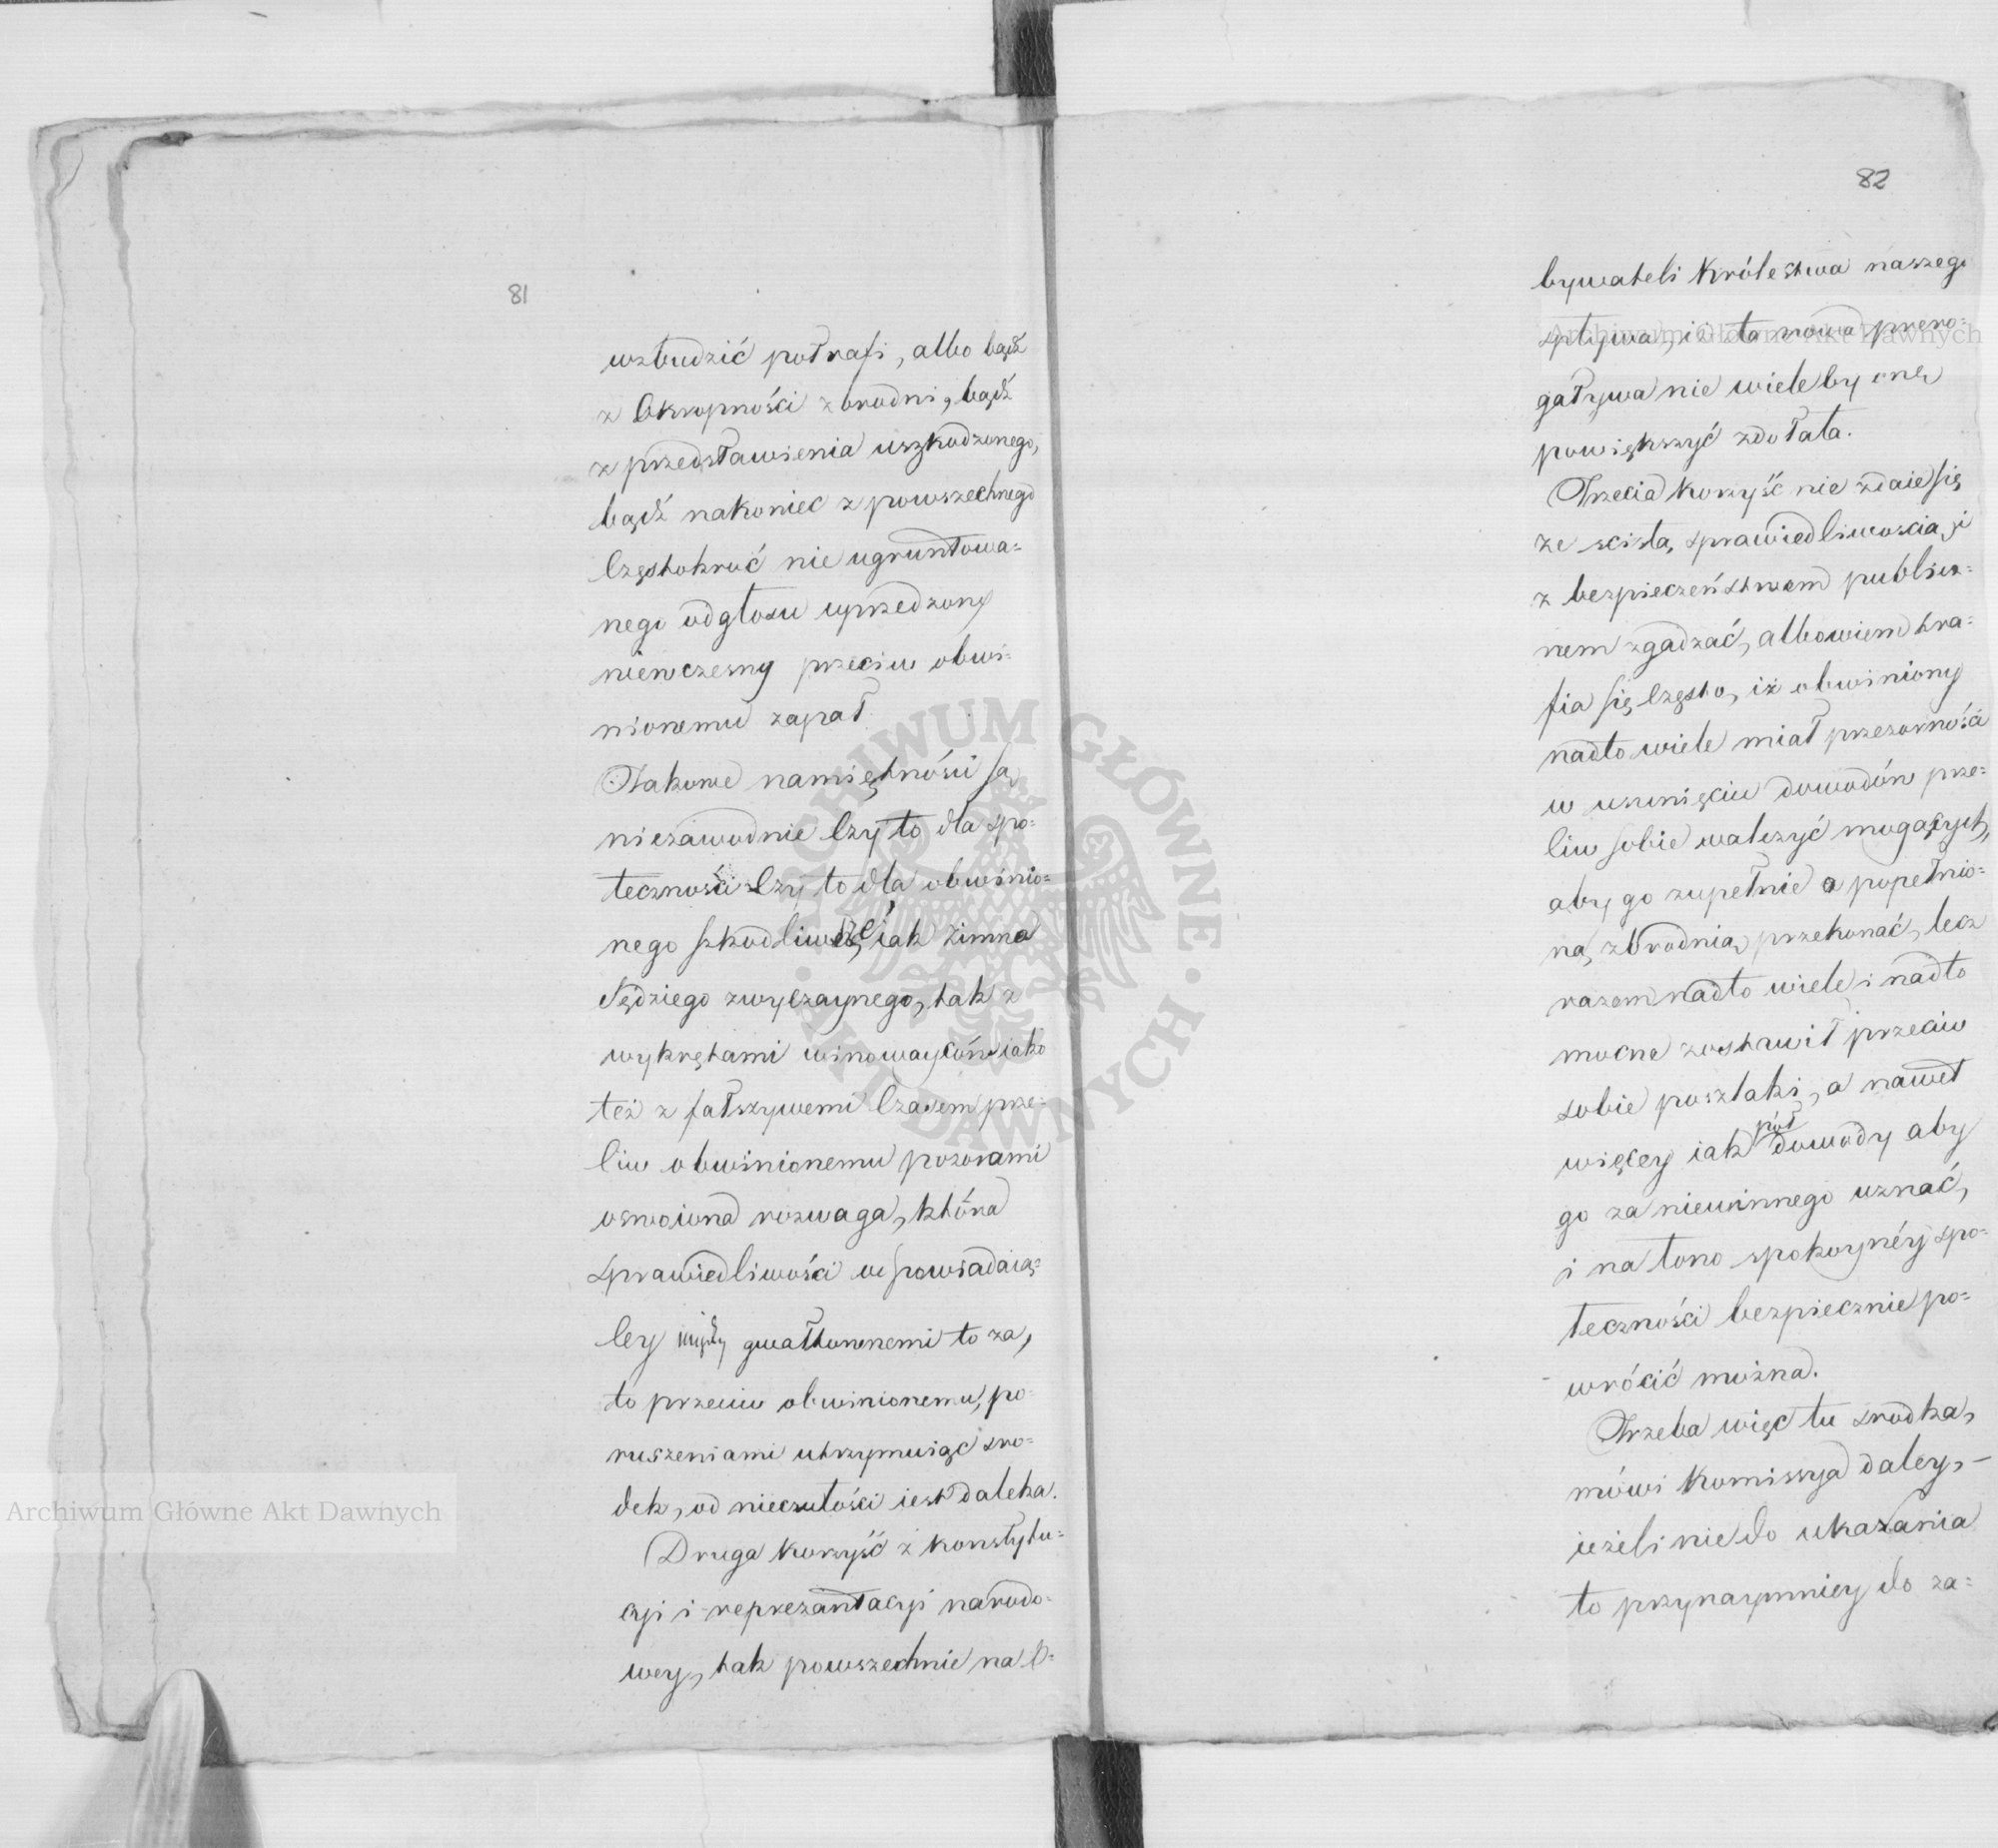 81
wzbudzić potrafi, albo bądź
z Okropności zbrodni, bądź
z przedstawienia uszkodzonego,
bądź nakoniec z powszechnego
Częstokroć nie ugruntowa=
nego odgłosu uprzedzony
niewczesny przeciw obwi=
nionemu zapał
Takowe namiętności są
niezawodnie Czy to dla spo=
łeczności Czy to dla obwinio=
nego szkodliwe, iak zimna
Sędziego zwyczaynego, tak z
wykrętami winowayców iako
też z fałszywemi Czasem prze=
Ciw obwinionemu pozorami
oswoiona rozwaga, która
sprawiedliwości odpowiadaią=
Cey między gwałtownemi to za,
to przeciw obwinionemu, po=
ruszeniami utrzymuiąc sro=
dek, od nieczułości iest daleka.
Druga korzyść z konstytu=
cyi i reprezantacyi narodo=
wey, tak powszechnie na O=
82
bywateli Królestwa naszego
spływa, iż ta nowa prero=
gatywa nie wiele by onę
powiększyć zdołała.
Trzecia korzyść nie zdaie się
ze scisłą sprawiedliwoscią i
z bezpieczeństwem publicz=
nem zgadzać, albowiem tra=
fia się Często, iż obwiniony
nadto wiele miał przezorności
w usunięciu dowodów prze=
Ciw sobie walczyć mogących,
aby go zupełnie o popełnio=
ną zbrodnią przekonać, lecz
razem nadto wiele i nadto
mocne zostawił przeciw
sobie poszlaki, a nawet
więcey iak pół dowody aby
go za niewinnego uznać,
i na łono spokoynéy spo=
łeczności bezpiecznie po=
wrócić można.
Trzeba więc tu srodka,
mówi Kommissya daley, -
ieżeli nie do ukazania
to przynaymniey do za=
Archiwum Główne Akt Dawnych
Archiwum Główne Akt Dawnych
ARCHIWUM GŁÓWNE · AKT DAWNYCH ·